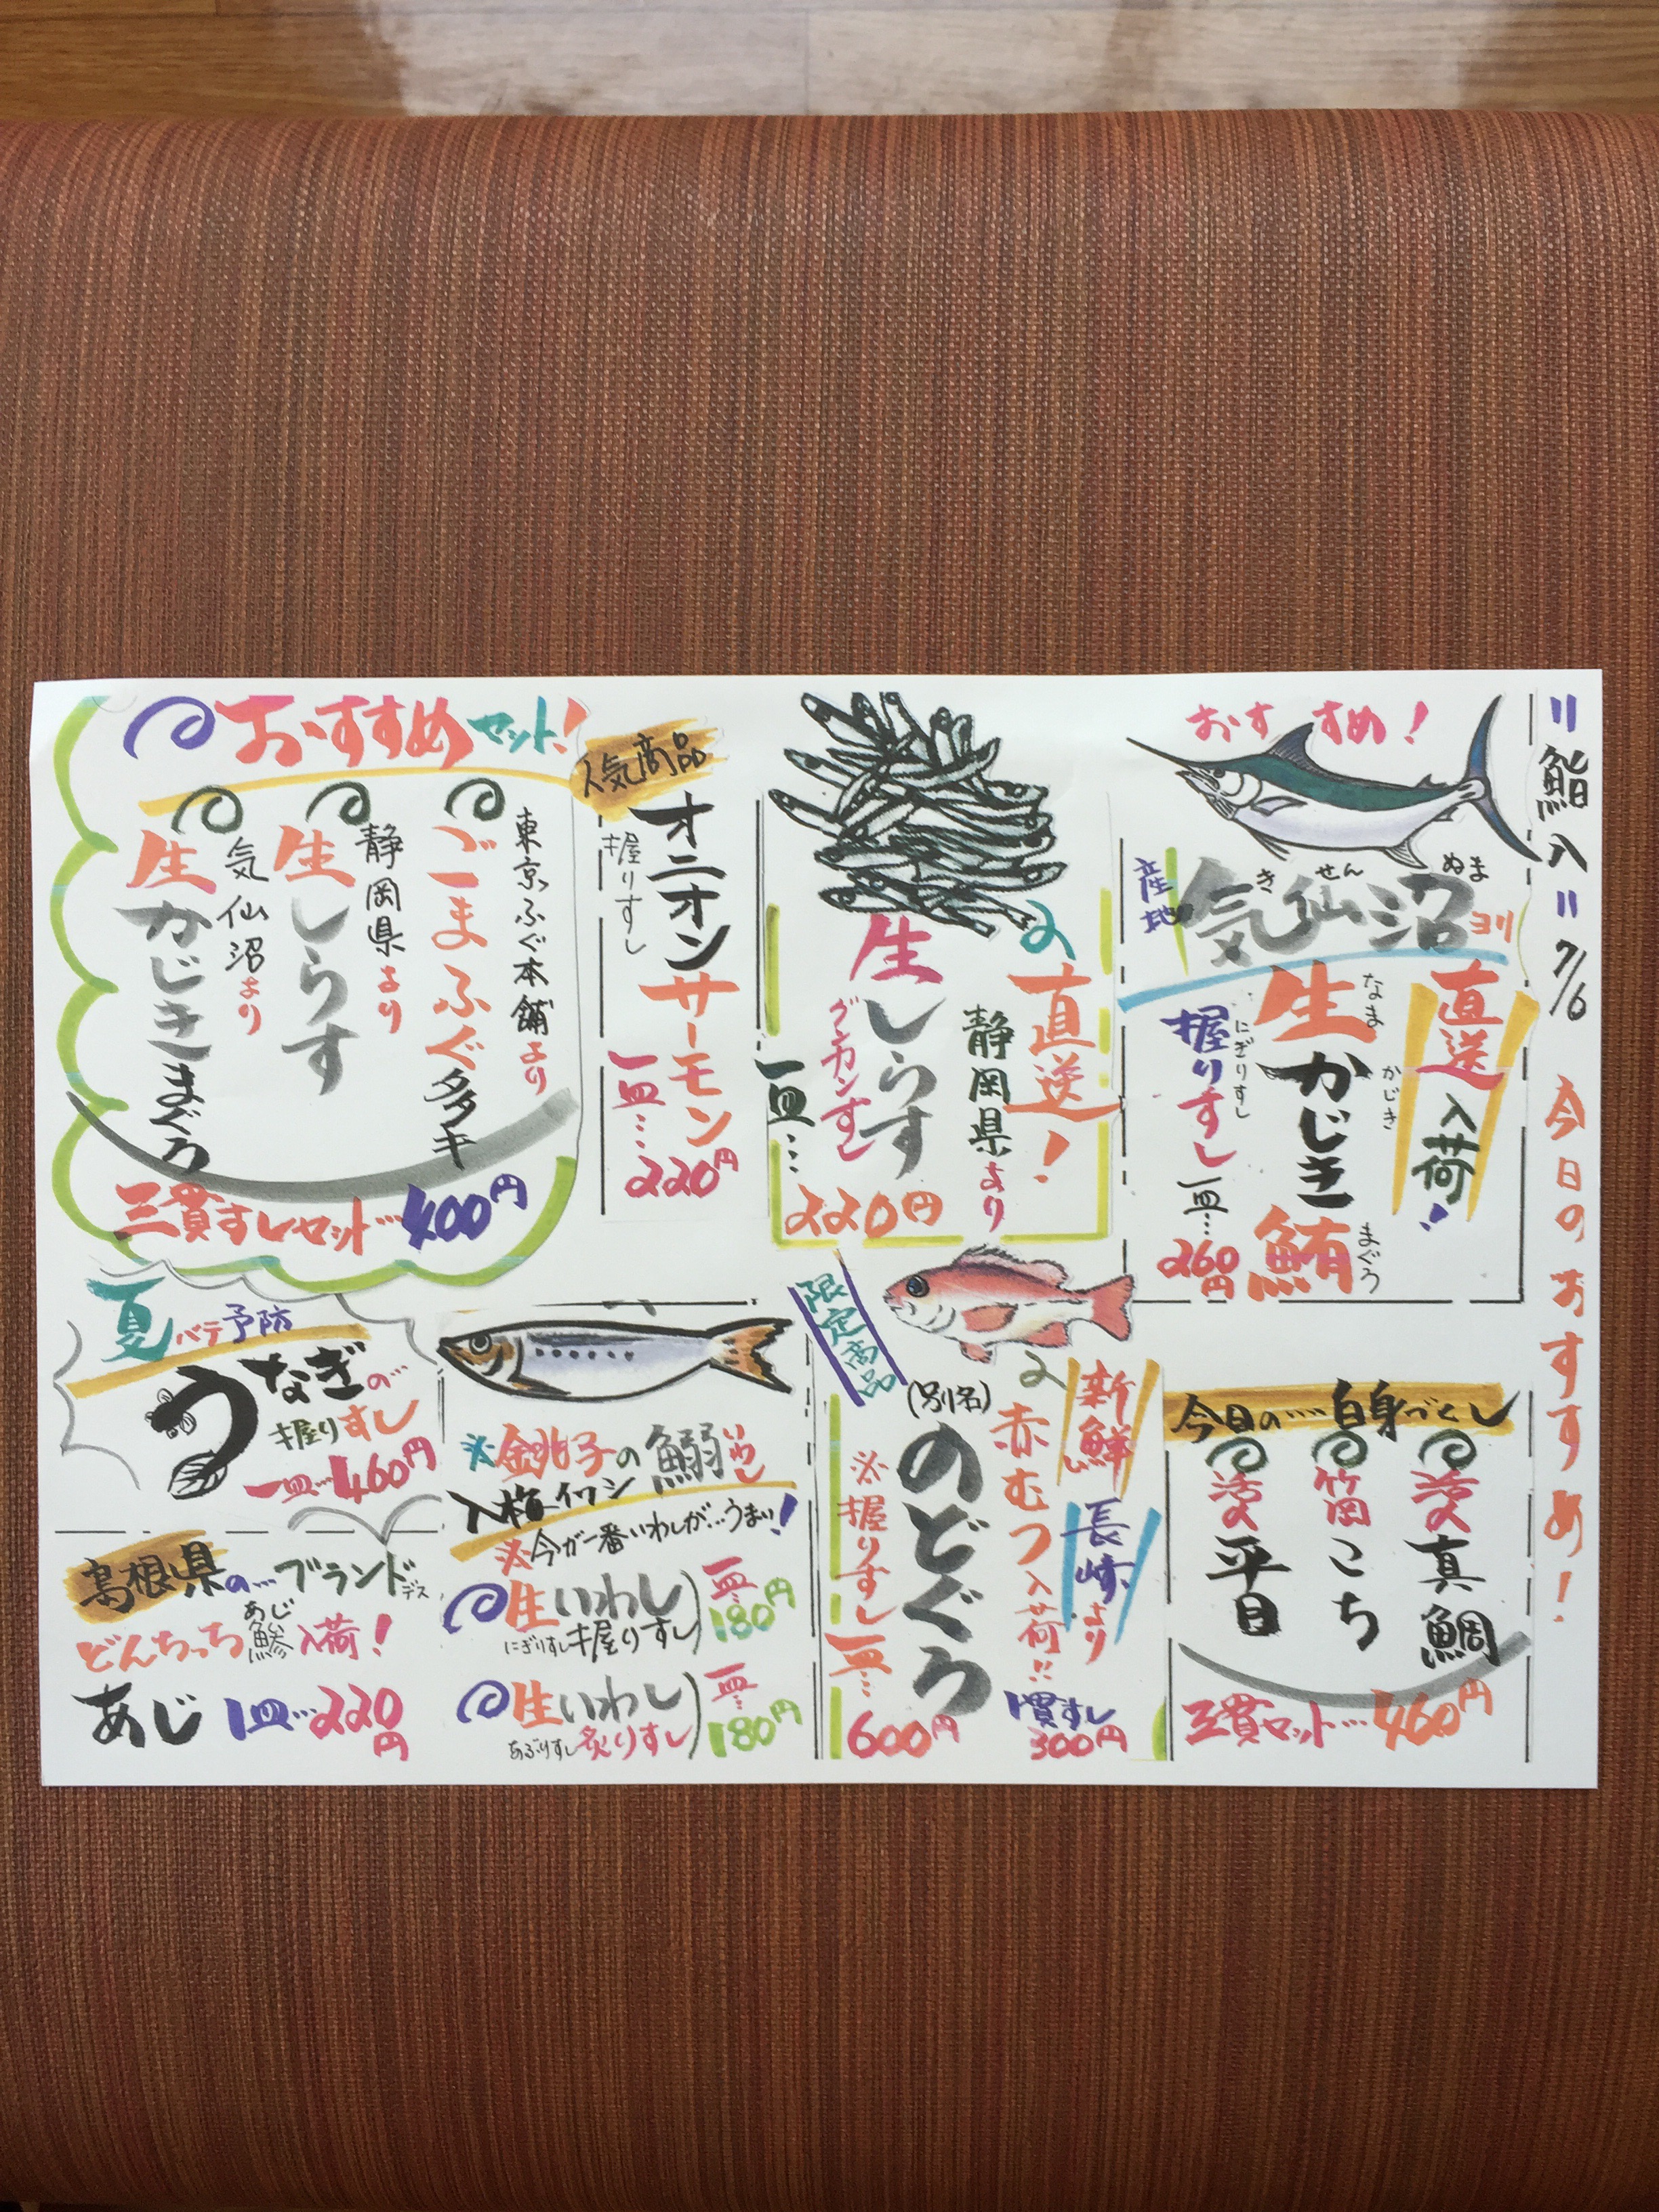 〃鮨入〃 7/6 今日のおすすめ!
おすすめ!
産地
気仙沼ヨリ
きせんぬま
直送入荷!
生かじき鮪
なま かじき まぐろ
握りすし 一皿…260円
にぎりすし
直送!
静岡県より
生しらす
グンカンすし
一皿…220円
人気商品
オニオンサーモン
握りすし
一皿…220円
おすすめセット!
東京ふぐ本舗より
ごまふぐタタキ
静岡県より
生しらす
気仙沼より
生かじきまぐろ
三貫すしセット…400円
今日の…白身づくし
活〆真鯛
筒こち
活〆平目
三貫セット…460円
限定商品
新鮮
長崎より
赤むつ入荷!!
(別名)
のどぐろ
※握りすし
一皿…600円
1貫すし
300円
※銚子の鰯
いわし
入梅イワシ
※今が一番いわしが…うまい!
生いわし
にぎりすし握りすし
一皿…180円
生いわし
あぶりすし炙りすし
一皿…180円
夏バテ予防
うなぎの…
握りすし
一皿…460円
島根県の…ブランドデス
どんちっち鯵入荷!
あじ
あじ 1皿…220円